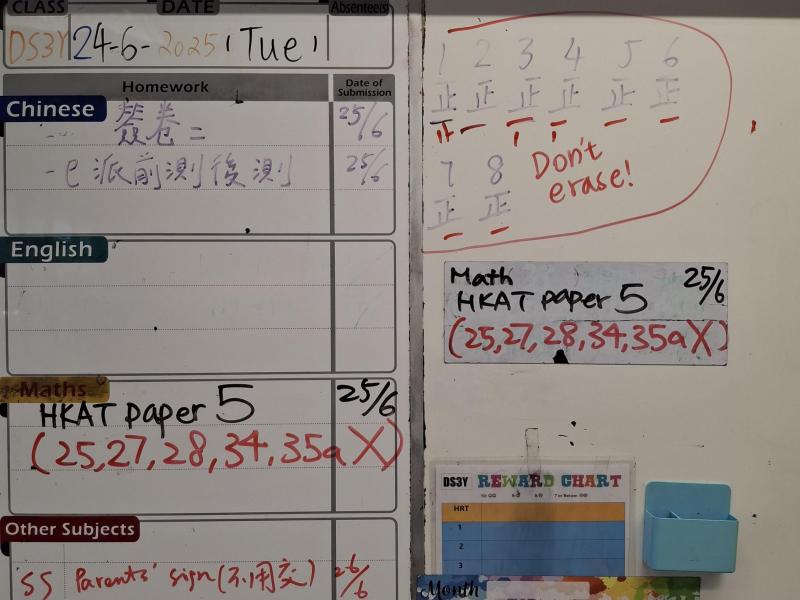 CLASS DATE Absentee(s)
DS3Y 24-6-2025 (Tue)
Homework Date of Submission
Chinese
卷二 25/6
-e派前測後測 25/6
English
Maths
HKAT paper 5 25/6
(25,27,28,34,35a X)
Other Subjects
SS Parents' sign(不用交) 26/6
1 2 3 4 5 6
正 正 正 正 正 正
7 8
正 正
Don't
erase!
Math 25/6
HKAT paper 5
(25,27,28,34,35a X)
DS3Y REWARD CHART
HRT
1
2
3
Month